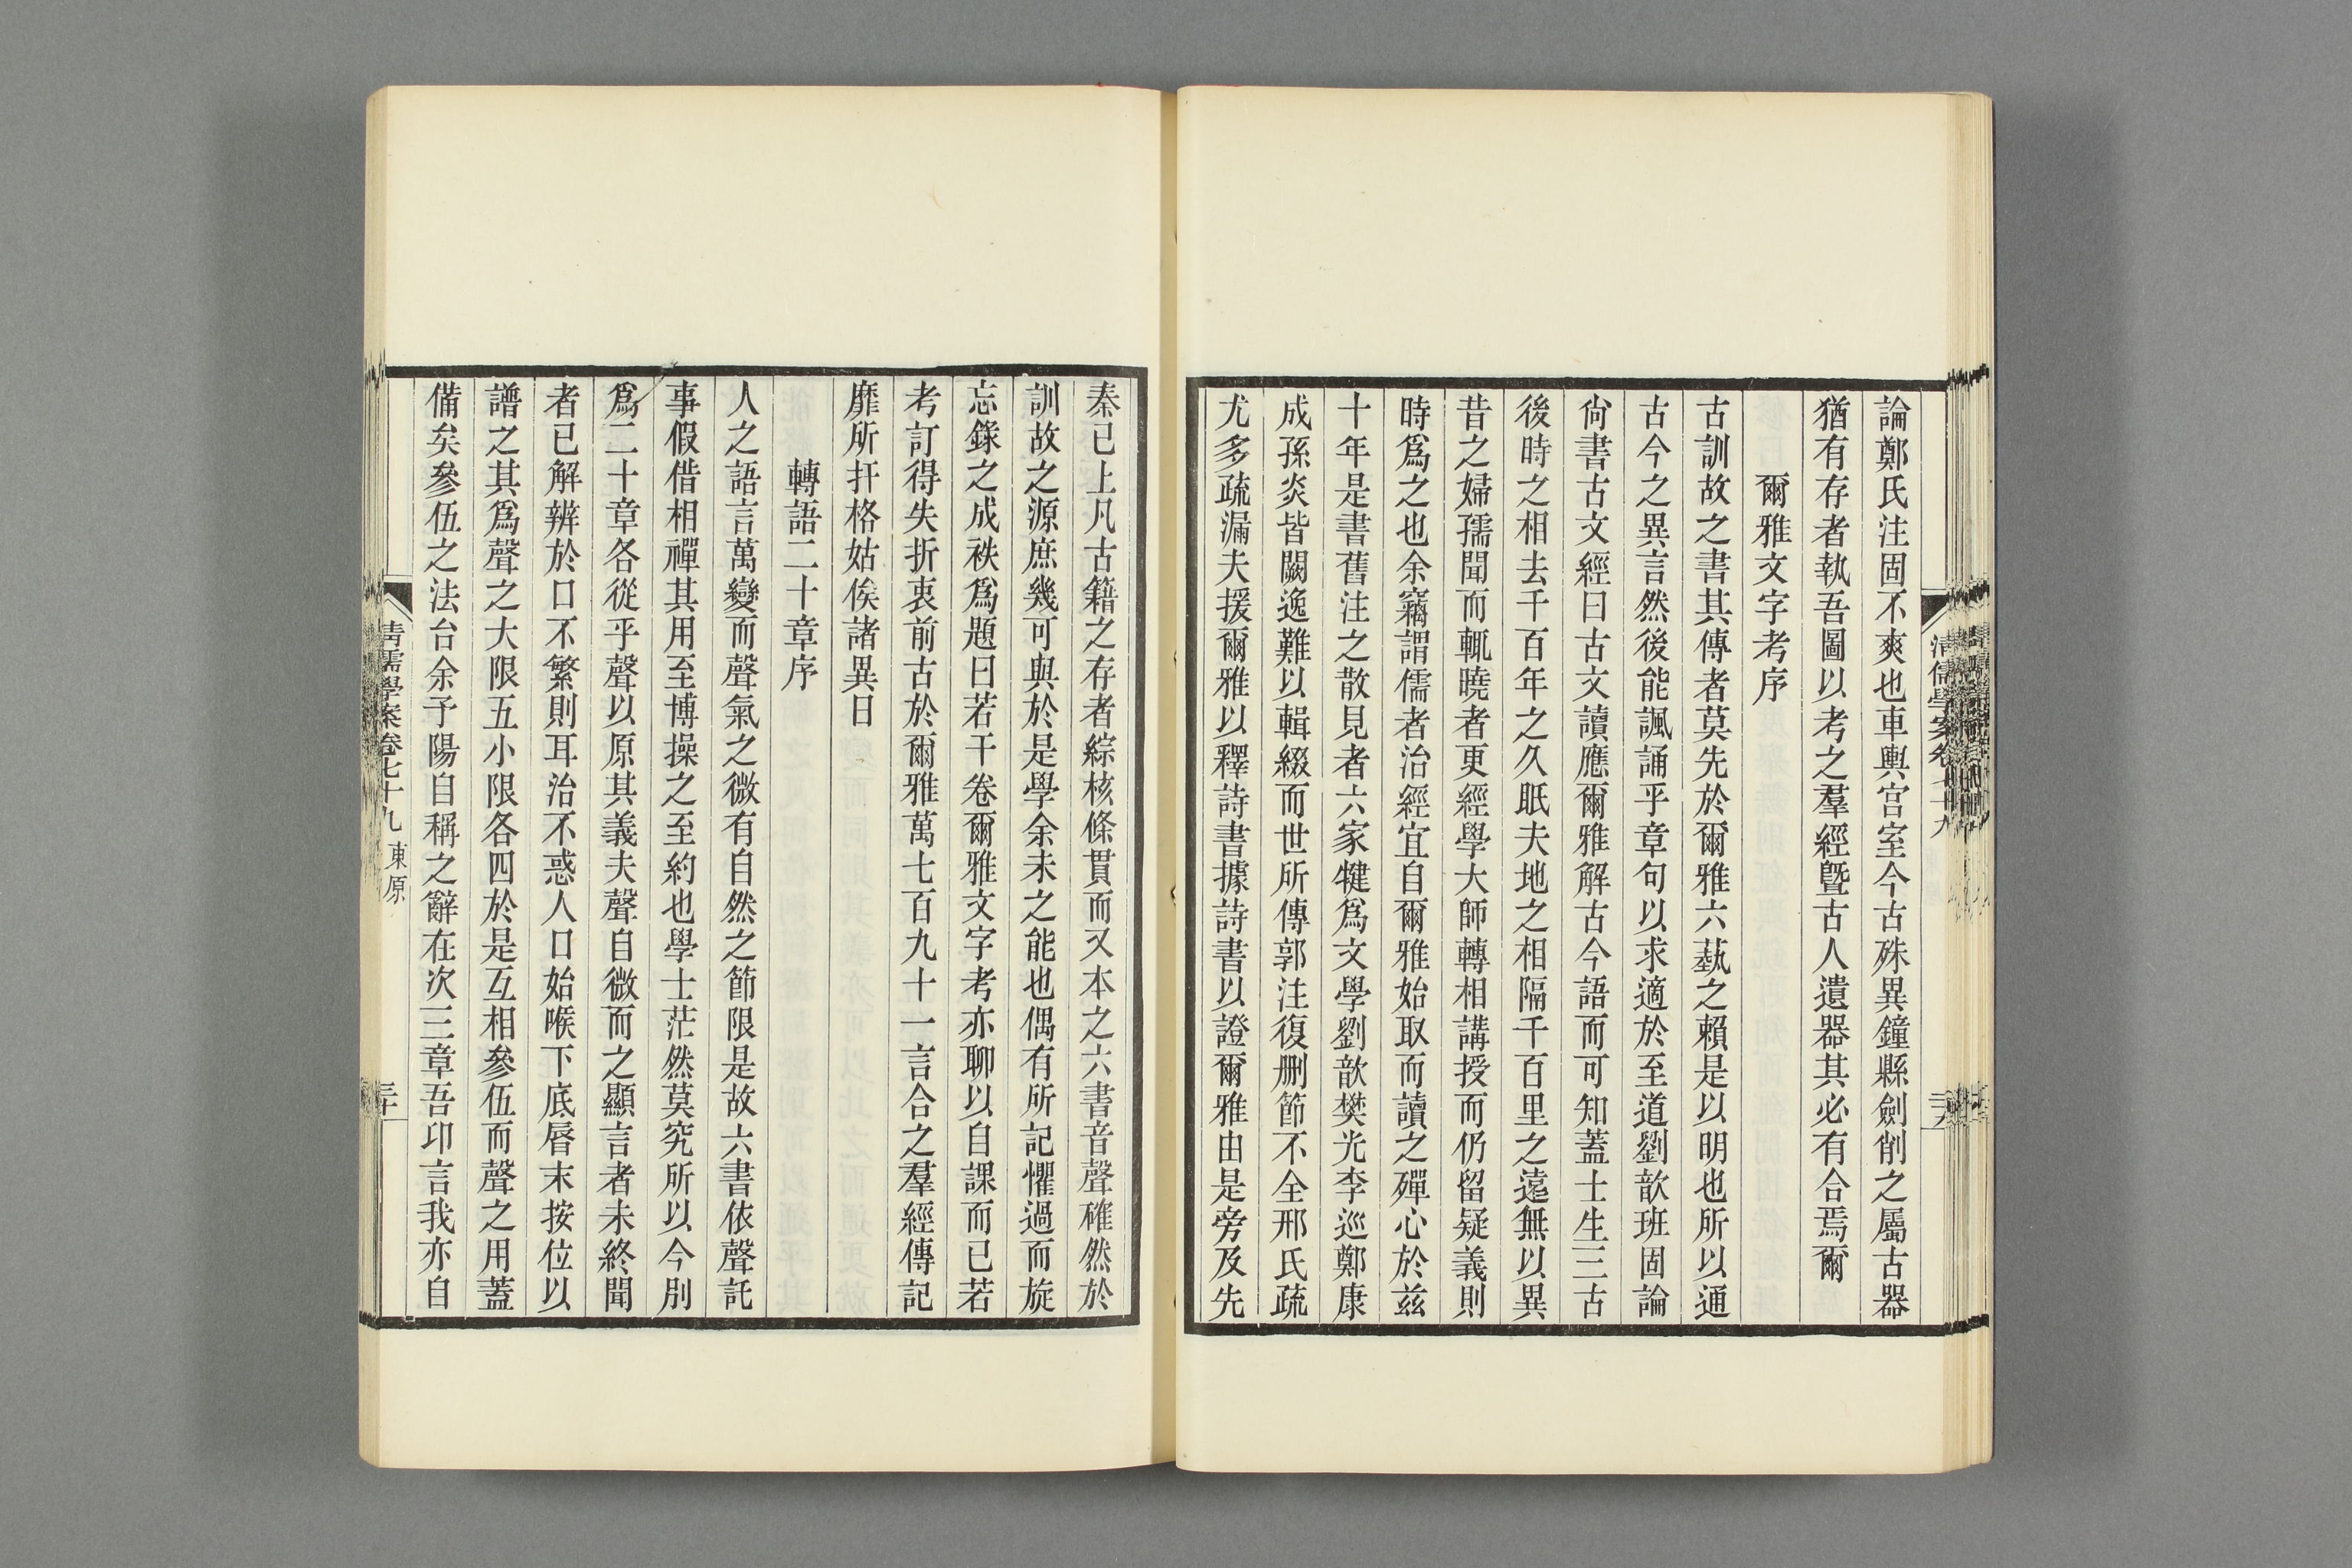 論鄭氏注固不爽也車輿宮室今古殊異鐘縣劍削之屬古器
猶有存者執吾圖以考之羣經曁古人遺器其必有合焉爾
爾雅文字考序
古訓故之書其傳者莫先於爾雅六蓺之賴是以明也所以通
古今之異言然後能諷誦乎章句以求適於至道劉歆班固論
尙書古文經曰古文讀應爾雅解古今語而可知蓋士生三古
後時之相去千百年之久眂夫地之相隔千百里之遠無以異
昔之婦孺聞而輒曉者更經學大師轉相講授而仍留疑義則
時爲之也余竊謂儒者治經宜自爾雅始取而讀之殫心於兹
十年是書舊注之散見者六家犍爲文學劉歆樊光李巡鄭康
成孫炎皆闕逸難以輯綴而世所傳郭注復刪節不全邢氏疏
尤多疏漏夫援爾雅以釋詩書據詩書以證爾雅由是旁及先
清儒學案卷七十九
秦已上凡古籍之存者綜核條貫而又本之六書音聲確然於
訓故之源庶幾可與於是學余未之能也偶有所記懼過而旋
忘錄之成袟爲題曰若干卷爾雅文字考亦聊以自課而已若
考訂得失折衷前古於爾雅萬七百九十一言合之羣經傳記
靡所扞格姑俟諸異日
轉語二十章序
人之語言萬變而聲氣之微有自然之節限是故六書依聲託
事假借相禪其用至博操之至約也學士茫然莫究所以今別
爲二十章各從乎聲以原其義夫聲自微而之顯言者未終聞
者已解辨於口不繁則耳治不惑人口始喉下底脣末按位以
譜之其爲聲之大限五小限各四於是互相參伍而聲之用蓋
備矣參伍之法台余予陽自稱之辭在次三章吾卬言我亦自
清儒學案卷七十九 東原
三十